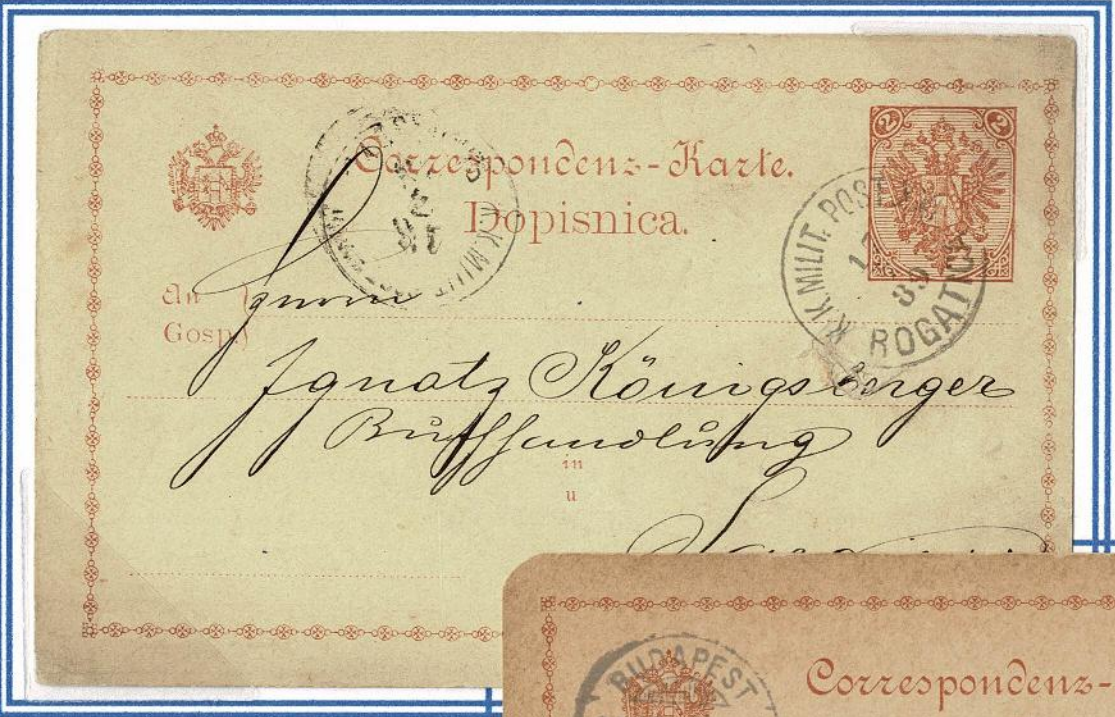 Correspondenz-Karte.
Dopisnica.
2 2
K.K. MILIT. POST
ROGATICA
An
Gosp.)
Herrn
Ignatz Königsberger
Buchhandlung
in
u
BUDAPEST
Correspondenz-